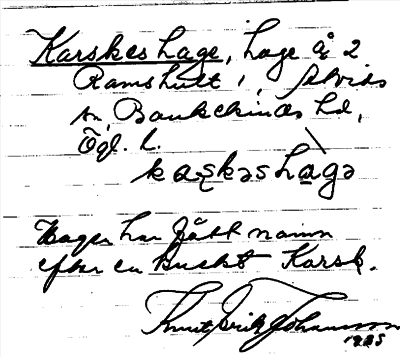 Karskes hage, hage å 2
Ramshult, Gärdserums
sn, Bankekinds hd,
Ögl. l.
kaskəshagə
Hagen har fått namn
efter en kusk Karsk.
Knut Erik Johansson
1925